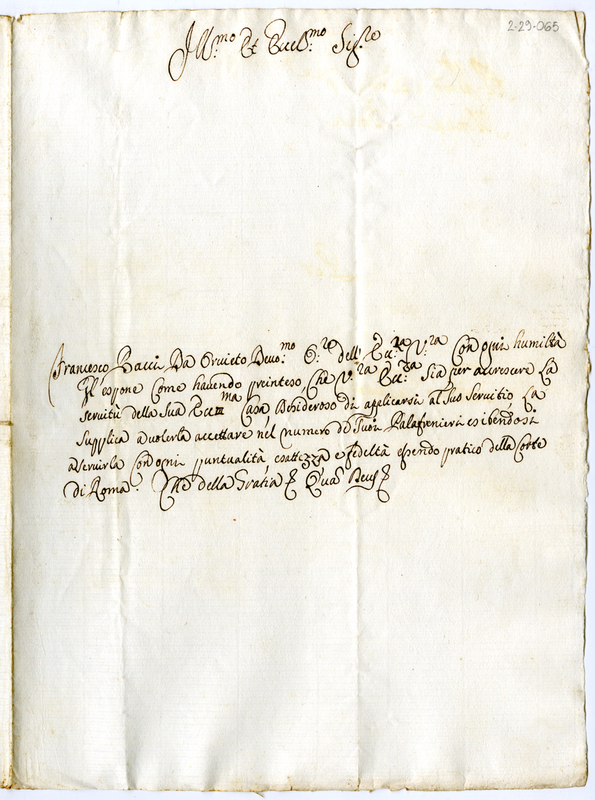 2-29-065
Ill.mo Et Ecell.mo Sig.re
Francesco Bacci Da Orvieto Devo.mo S.re dell' Ecc.za V.ra Con ogni humiltà
Gl'espone Come havendo preinteso Che V.ra Ecc.za Sia per accrescere La
servitù della Sua Ecc.ma Casa Desideroso di applicarsi al Suo Servitio, La
supplica a volerla accettare nel numero de Suoi Palafrenieri esibendosi
a servirla Con ogni puntualità esattezza e fideltà essendo pratico della Corte
di Roma. Che della Gratia & Qua Deus &